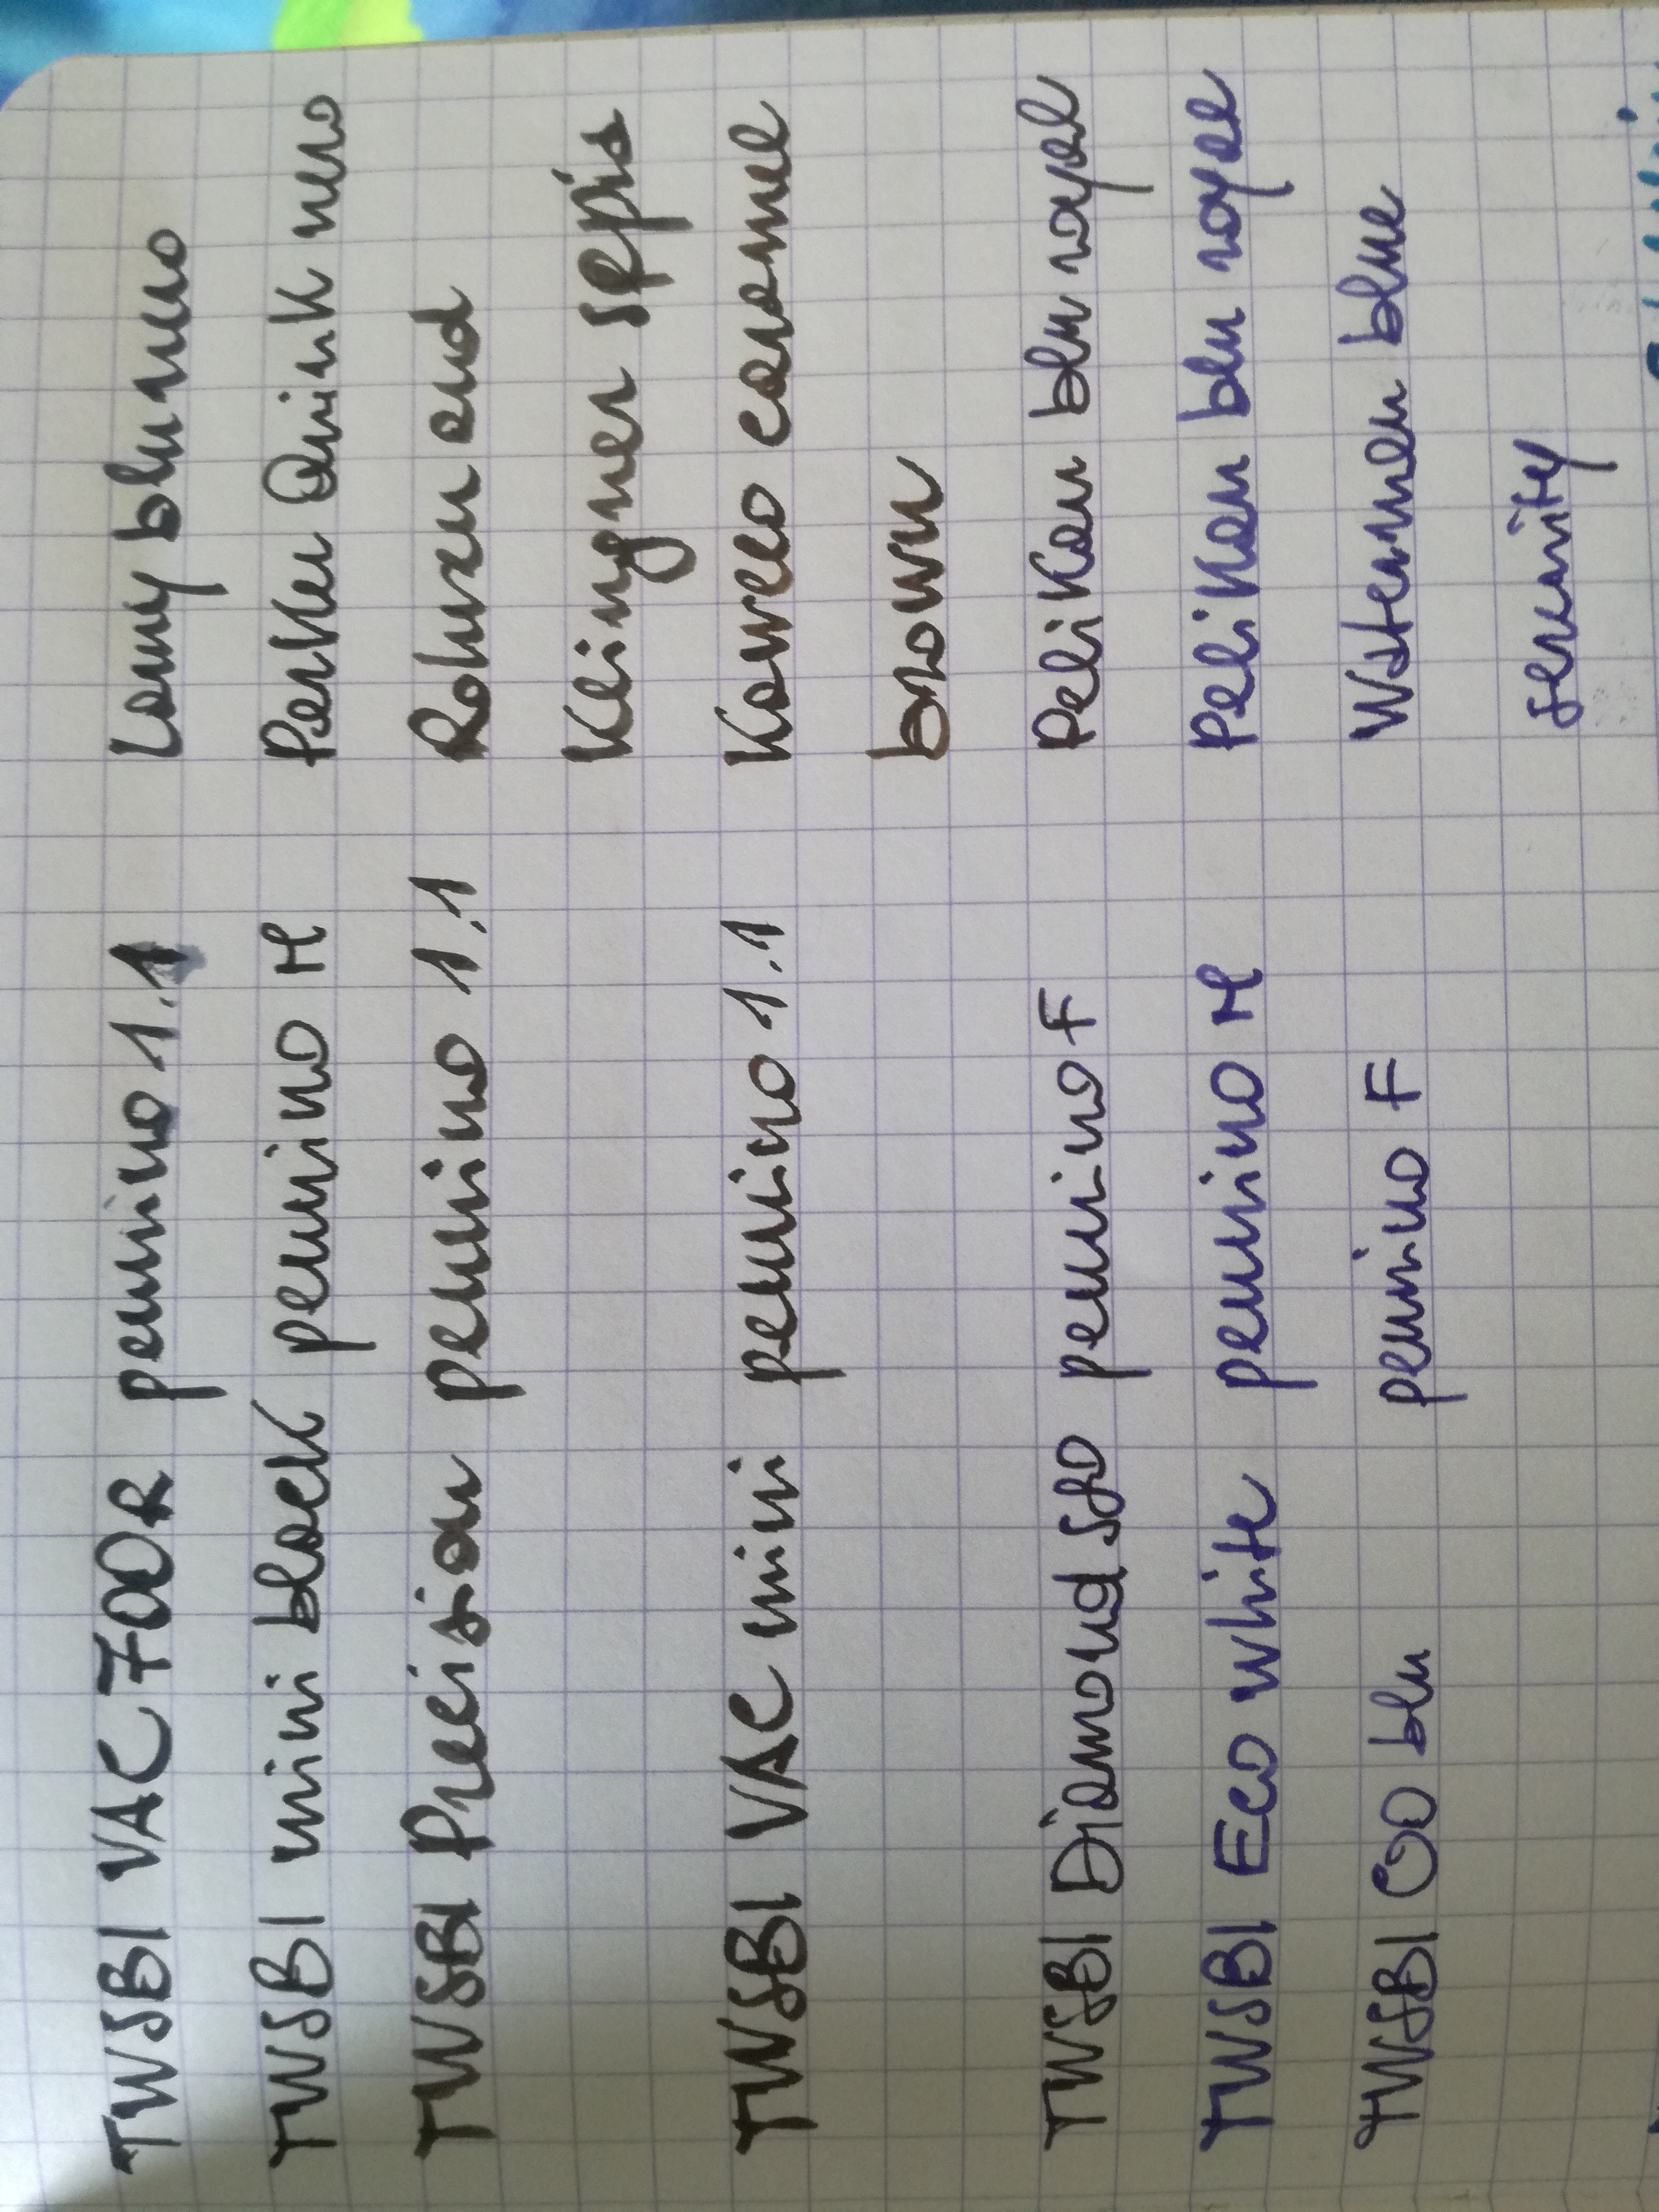 TWSBI VAC 700R pennino 1.1 Lamy blu nero
TWSBI mini black pennino M Parker Quink nero
TWSBI Precision pennino 1.1 Rohrer und
Klingner sepia
TWSBI VAC mini pennino 1.1 Kaweco caramel
brown
TWSBI Diamond 580 pennino F Pelikan blu royal
TWSBI Eco white pennino M Pelikan blu royal
TWSBI GO blu pennino F Waterman blue
serenity